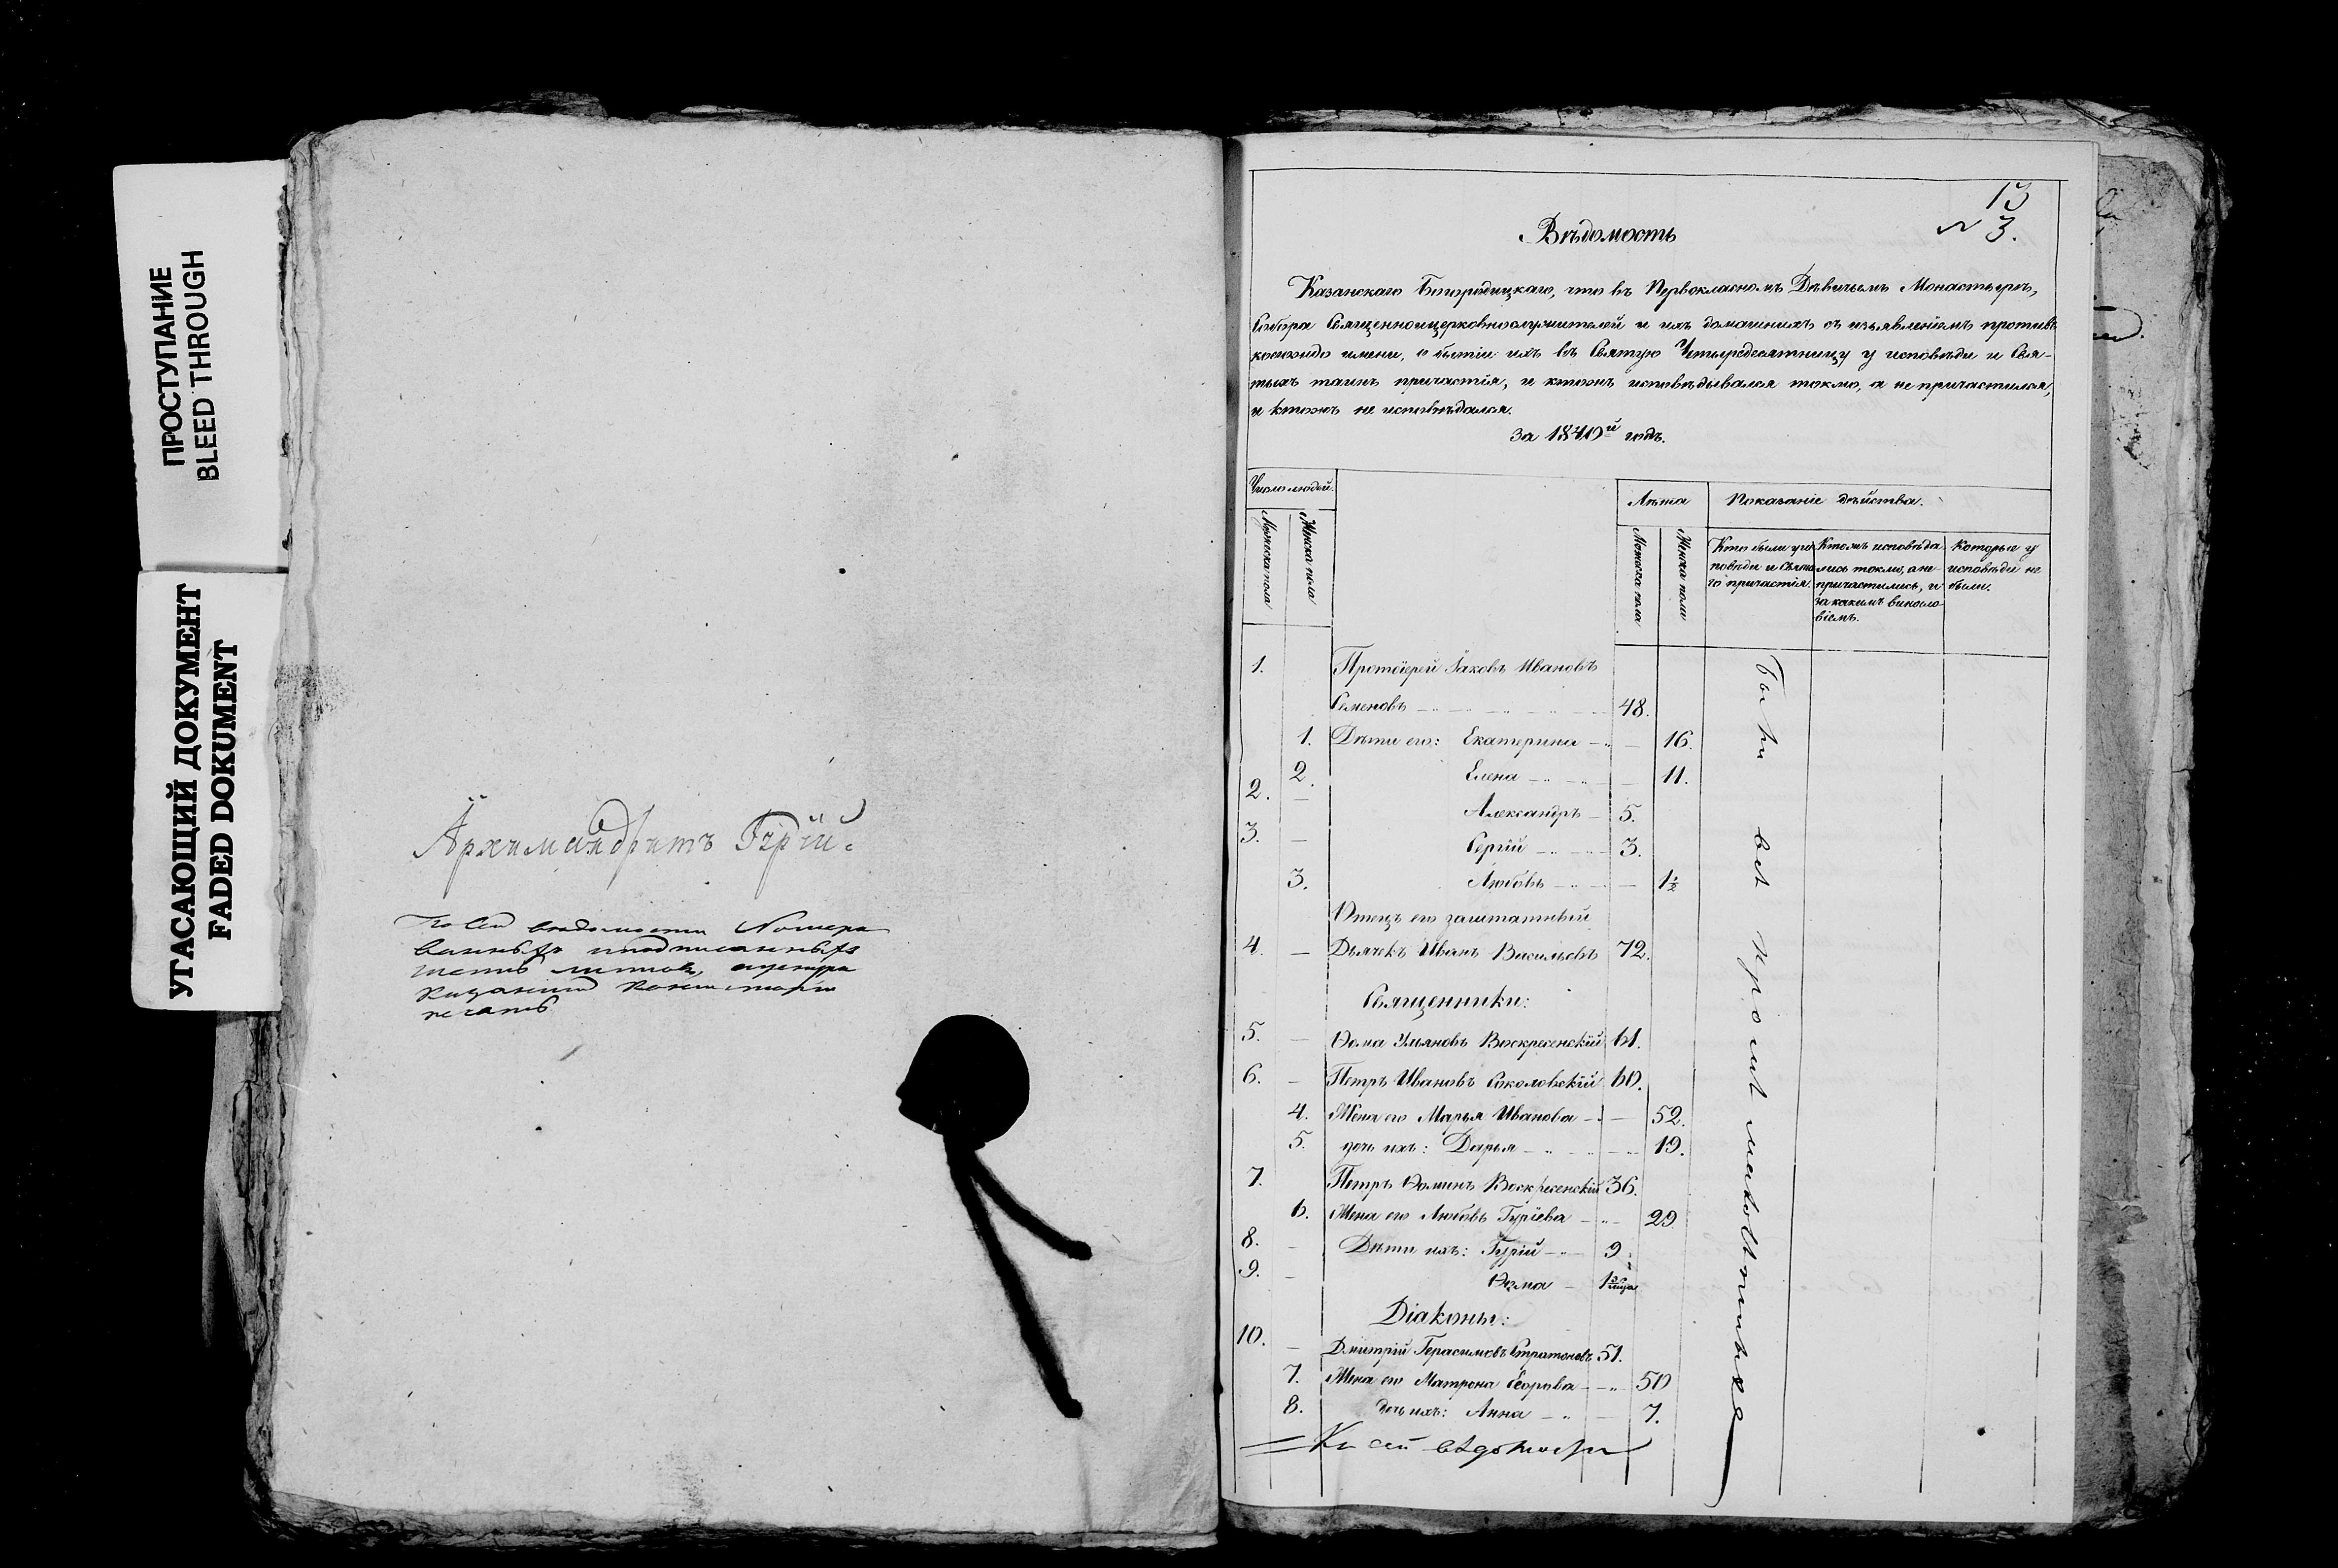 ПРОСТУПАНИЕ
BLEED THROUGH
УГАСАЮЩИЙ ДОКУМЕНТ
FADED DOKUMENT
Архимандритъ Гурій.
По сей вѣдомости Номеро
ванныхъ и подписанныхъ
шесть листовъ, а у шнура
Казанской Консисторіи
печать
13
N 3.
Вѣдомость
Казанскаго Богородицкаго, что въ Первоклассномъ Дѣвичьемъ Монастырѣ,
Собора Священноицерковнослужителей и ихъ домашнихъ съ изъявленіемъ противъ
коегождо имени, о бытіи ихъ въ Святую Четыредесятницу у исповѣди и Свя-
тыхъ таинъ причастія, и ктожъ исповѣдывался токмо, а не причастился,
и ктожъ не исповѣдался.
за 1840й годъ.
Число людей.
Мужеска пола
Женска пола
Лѣта
Мужеска пола
Женска пола
Показаніе дѣйства.
Кто были у ис
повѣди и Свята
го причастія.
Ктожъ исповѣда
лись токмо, а не
причастились, и
за какимъ виносло
віемъ.
Которые у
исповѣди не
были.
1. Протоіерей Іаковъ Ивановъ
Семеновъ 48.
1. Дѣти его: Екатерина 16.
2. Елена 11.
2. Александръ 5.
3. Сергій 3.
3. Любовь 1½
Отецъ его заштатный
4. Дьячекъ Иванъ Васильевъ 72.
Священники:
5. Ѳома Ульяновъ Воскресенскій 61.
6. Петръ Ивановъ Соколовскій 60.
4. Жена его Марья Иванова 52.
5. дочь ихъ: Дарья 19.
7. Петръ Ѳоминъ Воскресенскій 36.
6. Жена его Любовь Гуріева 29
8. Дѣти ихъ: Гурій 9.
9. Ѳома
Діаконы:
10. Дмитрій Герасимовъ Стратоновъ 51.
7. Жена его Матрона Егорова 50
8. дочь ихъ: Анна 7.
Были всѣ кромѣ малолѣтнихъ
Къ сей вѣдомости